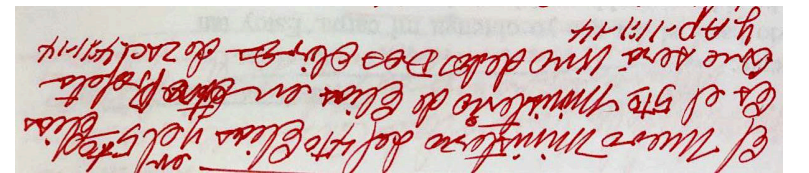 El nuevo ministerio del 4to Elias y el 5to Elias
Es el 5to ministerio de Elias en Profeta
Que será Uno de los Dos Olivos de Zac. 4:11-14
y Ap. 11:1-14